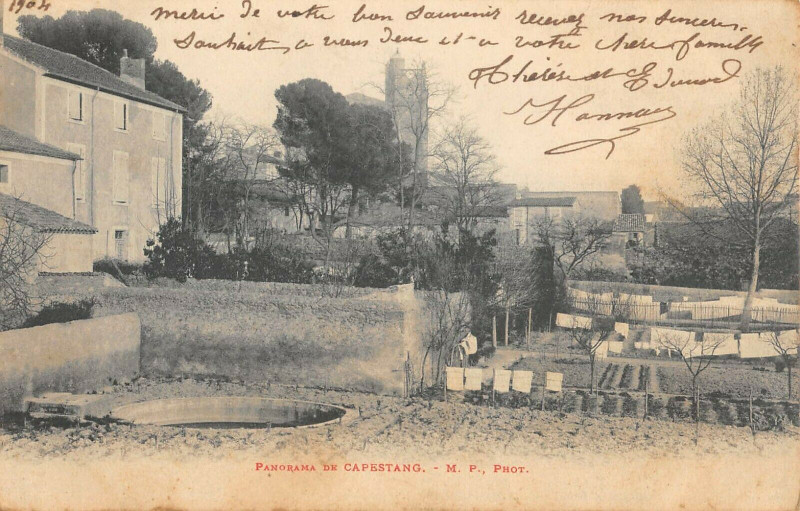 1904
merci de votre bon souvenir recevez nos sincères
souhaits a vous deux et a votre chère famille
Thérèse et Edouard
Hannau
PANORAMA DE CAPESTANG. - M. P., PHOT.